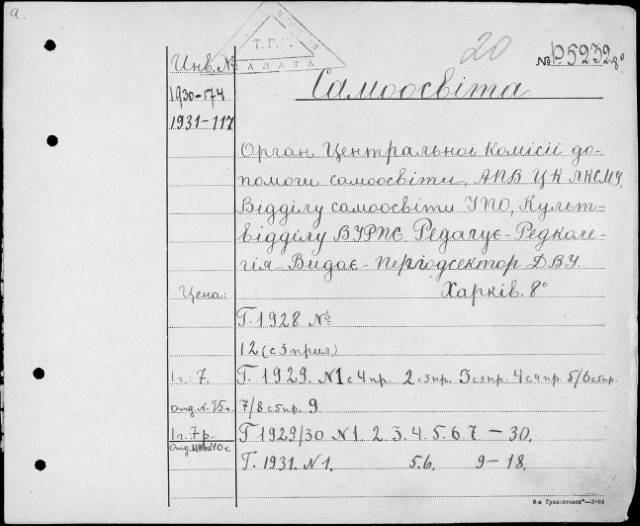 а.
Т.Г.
АЛАТА
20
№ Р5232 8°
Инв. №
Самоосвіта
1930-174
1931-117
Орган Центральної Комісії до-
помоги самоосвіти, АПВ ЦК ЛКСМУ,
Відділу самоосвіти УПО, Культ=
відділу ВУРПС. Редагує-Редколе-
гія Видає-Періодсектор ДВУ.
Цена:
Харків. 8°
Г. 1928 №
12 (с 3 прил)
1 г. 7.
Г. 1929. №1 с 4 пр. 2 с 3 пр. 3 с 3 пр. 4 с 4 пр. 5/6 с 5 пр.
отд. №. 35 к.
7/8 с 5 пр. 9
1 г. 7 р.
Г 1929/30 №1. 2. 3. 4. 5. 6. 7. – 30.
отд. 40 к.
Г. 1931. №1. 5.6. 9-18.
8-я "—3-84